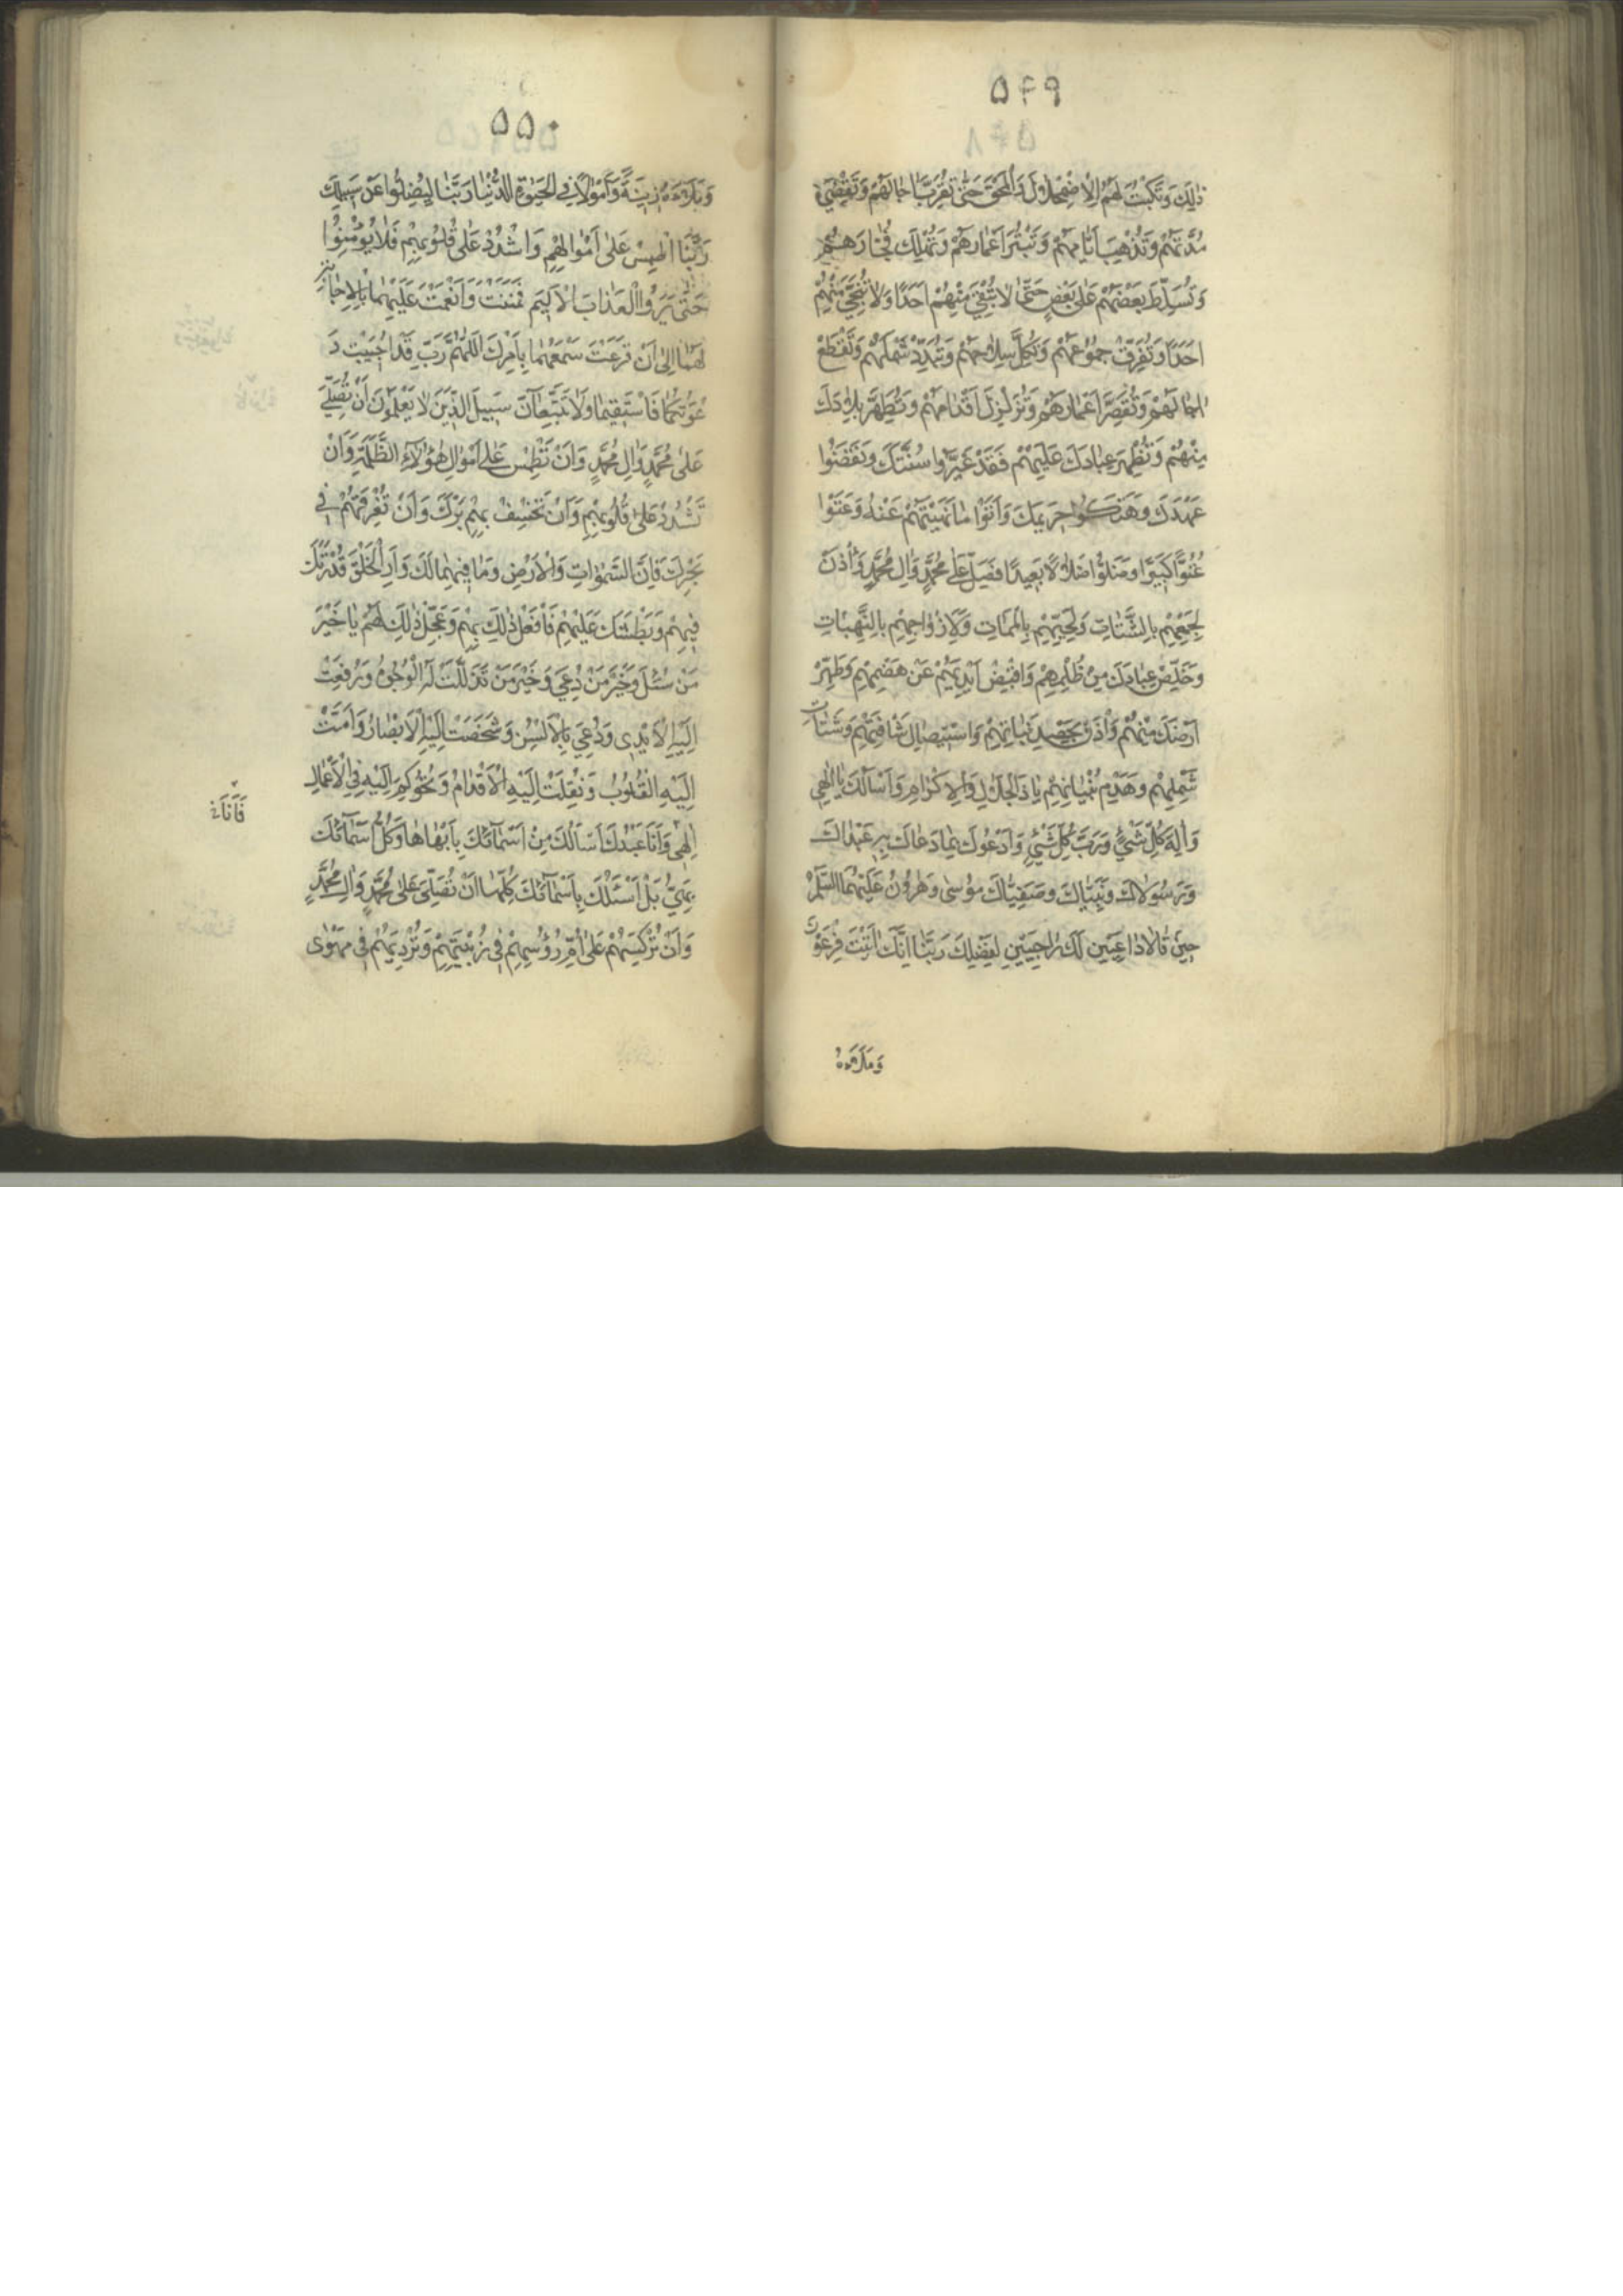 ۵۴۹
ذٰلِكَ وَتَكْبِتَ لَهُمُ الْاِضْمِحْلَالَ وَالْمَحْقَ حَتّٰى تُقَرِّبَ اٰجَالَهُمْ وَتَقْضِىَ
مُدَّتَهُمْ وَتُذْهِبَ اَيَّامَهُمْ وَتَبْتُرَ اَعْمَارَهُمْ وَتُهْلِكَ فُجَّارَهُمْ
وَتُسَلِّطَ بَعْضَهُمْ عَلٰى بَعْضٍ حَتّٰى لَا تُبْقِىَ مِنْهُمْ اَحَدًا وَلَا تُنَجِّىَ مِنْهُمْ
اَحَدًا وَتُفَرِّقَ جُمُوعَهُمْ وَتُكِلَّ سِلَاحَهُمْ وَتُبَدِّدَ شَمْلَهُمْ وَتُقَطِّعَ
اٰجَالَهُمْ وَتُقَصِّرَ اَعْمَارَهُمْ وَتُزَلْزِلَ اَقْدَامَهُمْ وَتُطَهِّرَ بِلَادَكَ
مِنْهُمْ وَتُظْهِرَ عِبَادَكَ عَلَيْهِمْ فَقَدْ غَيَّرُوا سُنَّتَكَ وَنَقَضُوا
عَهْدَكَ وَهَتَكُوا حَرِيمَكَ وَاَتَوْا مَا نَهَيْتَهُمْ عَنْهُ وَعَتَوْا
عُتُوًّا كَبِيرًا وَضَلُّوا ضَلَالًا بَعِيدًا فَصَلِّ عَلٰى مُحَمَّدٍ وَاٰلِ مُحَمَّدٍ وَأْذَنْ
لِجَمْعِهِمْ بِالشَّتَاتِ وَلِحَيِّهِمْ بِالْمَمَاتِ وَلِاَزْوَاجِهِمْ بِالنَّهَبَاتِ
وَخَلِّصْ عِبَادَكَ مِنْ ظُلْمِهِمْ وَاقْبِضْ اَيْدِيَهُمْ عَنْ هَضْمِهِمْ وَطَهِّرْ
اَرْضَكَ مِنْهُمْ وَأْذَنْ بِحَصْدِ نَبَاتِهِمْ وَاسْتِيصَالِ شَافَتِهِمْ وَشَتَاتِ
شَمْلِهِمْ وَهَدْمِ بُنْيَانِهِمْ يَا ذَا الْجَلَالِ وَالْاِكْرَامِ وَاَسْاَلُكَ يَا اِلٰهِى
وَاِلٰهَ كُلِّ شَىْءٍ وَرَبَّ كُلِّ شَىْءٍ وَاَدْعُوكَ بِمَا دَعَاكَ بِهِ عَبْدَاكَ
وَرَسُولَاكَ وَنَبِيَّاكَ وَصَفِيَّاكَ مُوسٰى وَهٰرُونُ عَلَيْهِمَا السَّلَامُ
حِينَ قَالَا دَاعِيَيْنِ لَكَ رَاجِيَيْنِ لِفَضْلِكَ رَبَّنَا اِنَّكَ اٰتَيْتَ فِرْعَوْنَ
وَمَلَاَهُ
۵۵۰
وَمَلَاَهُ زِينَةً وَاَمْوَالًا فِى الْحَيٰوةِ الدُّنْيَا رَبَّنَا لِيُضِلُّوا عَنْ سَبِيلِكَ
رَبَّنَا اطْمِسْ عَلٰى اَمْوَالِهِمْ وَاشْدُدْ عَلٰى قُلُوبِهِمْ فَلَا يُؤْمِنُوا
حَتّٰى يَرَوُا الْعَذَابَ الْاَلِيمَ فَمَنَنْتَ وَاَنْعَمْتَ عَلَيْهِمَا بِالْاِجَابَةِ
لَهُمَا اِلٰى اَنْ قَرَعْتَ سَمْعَهُمَا بِاَمْرِكَ اللّٰهُمَّ رَبِّ قَدْ اُجِيبَتْ دَ
عْوَتُكُمَا فَاسْتَقِيمَا وَلَا تَتَّبِعَانِّ سَبِيلَ الَّذِينَ لَا يَعْلَمُونَ اَنْ تُصَلِّىَ
عَلٰى مُحَمَّدٍ وَاٰلِ مُحَمَّدٍ وَاَنْ تَطْمِسَ عَلٰى اَمْوَالِ هٰؤُلَاءِ الظَّلَمَةِ وَاَنْ
تَشْدُدَ عَلٰى قُلُوبِهِمْ وَاَنْ تَخْسِفَ بِهِمْ بَرَّكَ وَاَنْ تُغْرِقَهُمْ فِى
بَحْرِكَ فَاِنَّ السَّمٰوَاتِ وَالْاَرْضَ وَمَا فِيهِمَا لَكَ وَاَرِ الْخَلْقَ قُدْرَتَكَ
فِيهِمْ وَبَطْشَتَكَ عَلَيْهِمْ فَافْعَلْ ذٰلِكَ بِهِمْ وَعَجِّلْ ذٰلِكَ لَهُمْ يَا خَيْرَ
مَنْ سُئِلَ وَخَيْرَ مَنْ دُعِىَ وَخَيْرَ مَنْ تَذَلَّلَتْ لَهُ الْوُجُوهُ وَرُفِعَتْ
اِلَيْهِ الْاَيْدِى وَدُعِىَ بِالْاَلْسُنِ وَشَخَصَتْ اِلَيْهِ الْاَبْصَارُ وَاَمَّتْ
اِلَيْهِ الْقُلُوبُ وَنُقِلَتْ اِلَيْهِ الْاَقْدَامُ وَتُحُوكِمَ اِلَيْهِ فِى الْاَعْمَالِ
اِلٰهِى وَاَنَا عَبْدُكَ اَسْاَلُكَ مِنْ اَسْمَآئِكَ بِاَبْهَاهَا وَكُلُّ اَسْمَآئِكَ
بَهِىٌّ بَلْ اَسْئَلُكَ بِاَسْمَآئِكَ كُلِّهَا اَنْ تُصَلِّىَ عَلٰى مُحَمَّدٍ وَاٰلِ مُحَمَّدٍ
وَاَنْ تُرْكِسَهُمْ عَلٰى اُمِّ رُؤُسِهِمْ فِى زُبْيَتِهِمْ وَتُرْدِيَهُمْ فِى مَهْوٰى